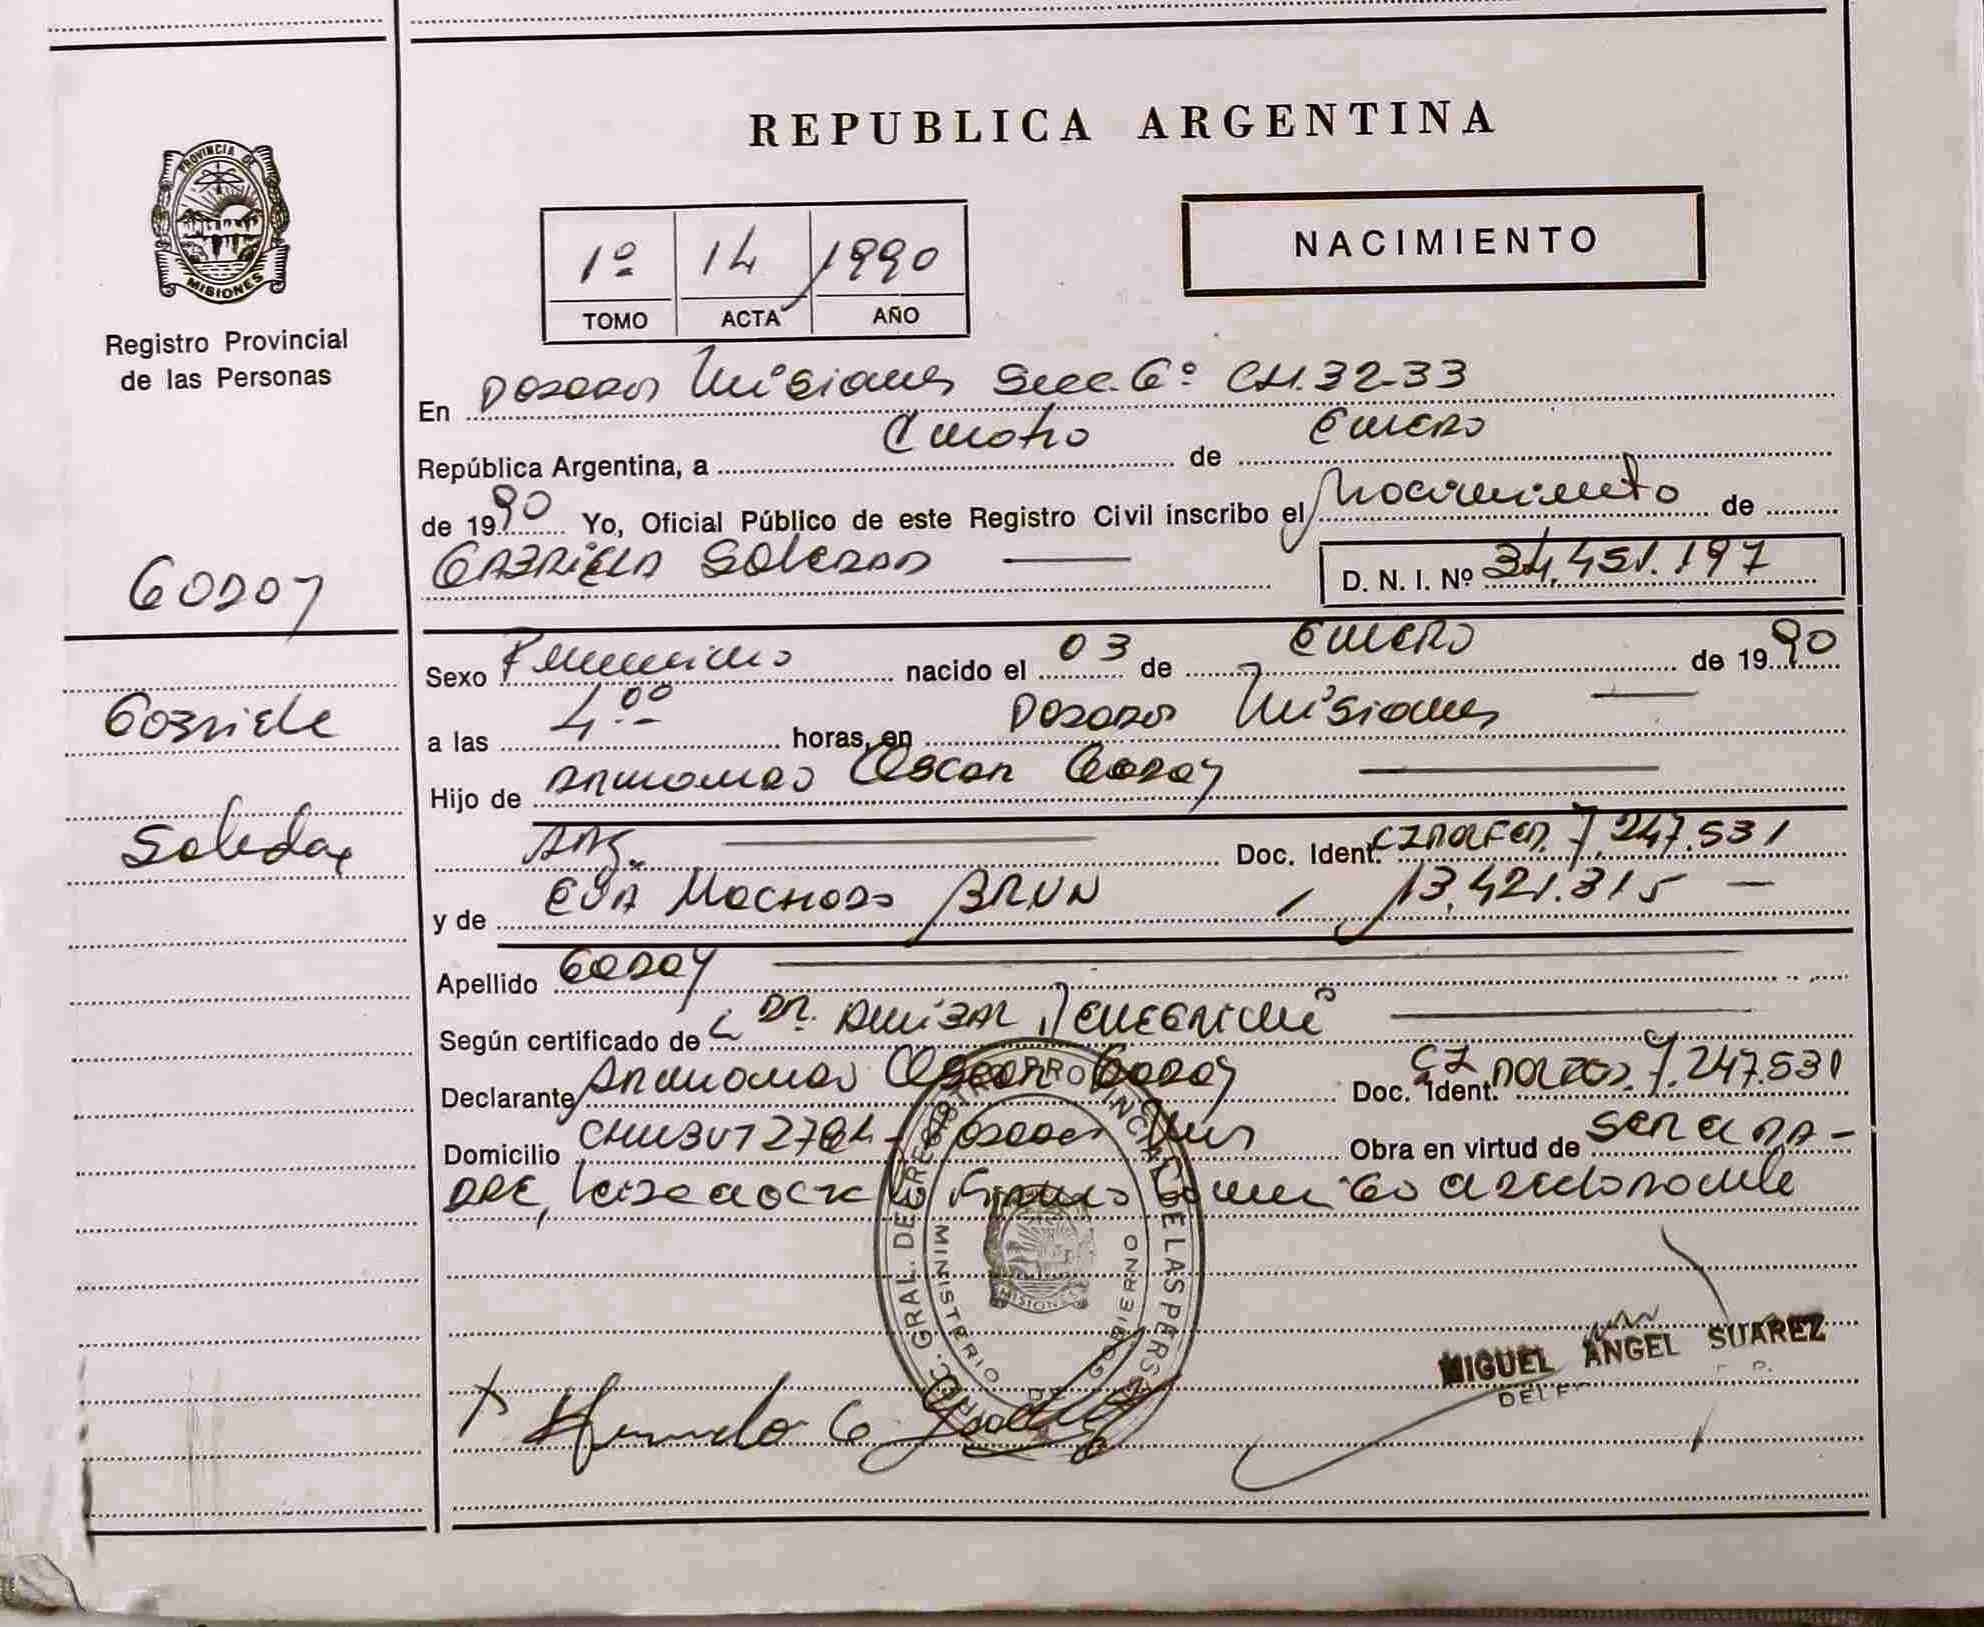 REPUBLICA ARGENTINA
PROVINCIA DE
MISIONES
Registro Provincial
de las Personas
1º 14 1990
TOMO ACTA AÑO
NACIMIENTO
En Posadas Misiones Secc. 6º CH. 32-33
República Argentina, a Cuatro de Enero
de 1990 Yo, Oficial Público de este Registro Civil inscribo el Nacimiento de
GABRIELA SOLEDAD
D. N. I. Nº 34.451.197
GODOY
Gabriela
Soledad
Sexo Femenino nacido el 03 de Enero de 1990
a las 4.00 horas, en Posadas Misiones
Hijo de Armando Oscar Godoy
Arg. Doc. Ident. 7.247.531
y de Eva Machado Brun 13.421.315
Apellido GODOY
Según certificado de Dr.
Declarante Armando Oscar Godoy Doc. Ident. 7.247.531
Domicilio Chubut 2784 - Posadas Mnes Obra en virtud de Ser el PA-
DRE, Firma Conmigo
DIREC. GRAL. DEL REGISTRO PROVINCIAL DE LAS PERSONAS
MINISTERIO DE GOBIERNO
MISIONES
MIGUEL ANGEL SUAREZ